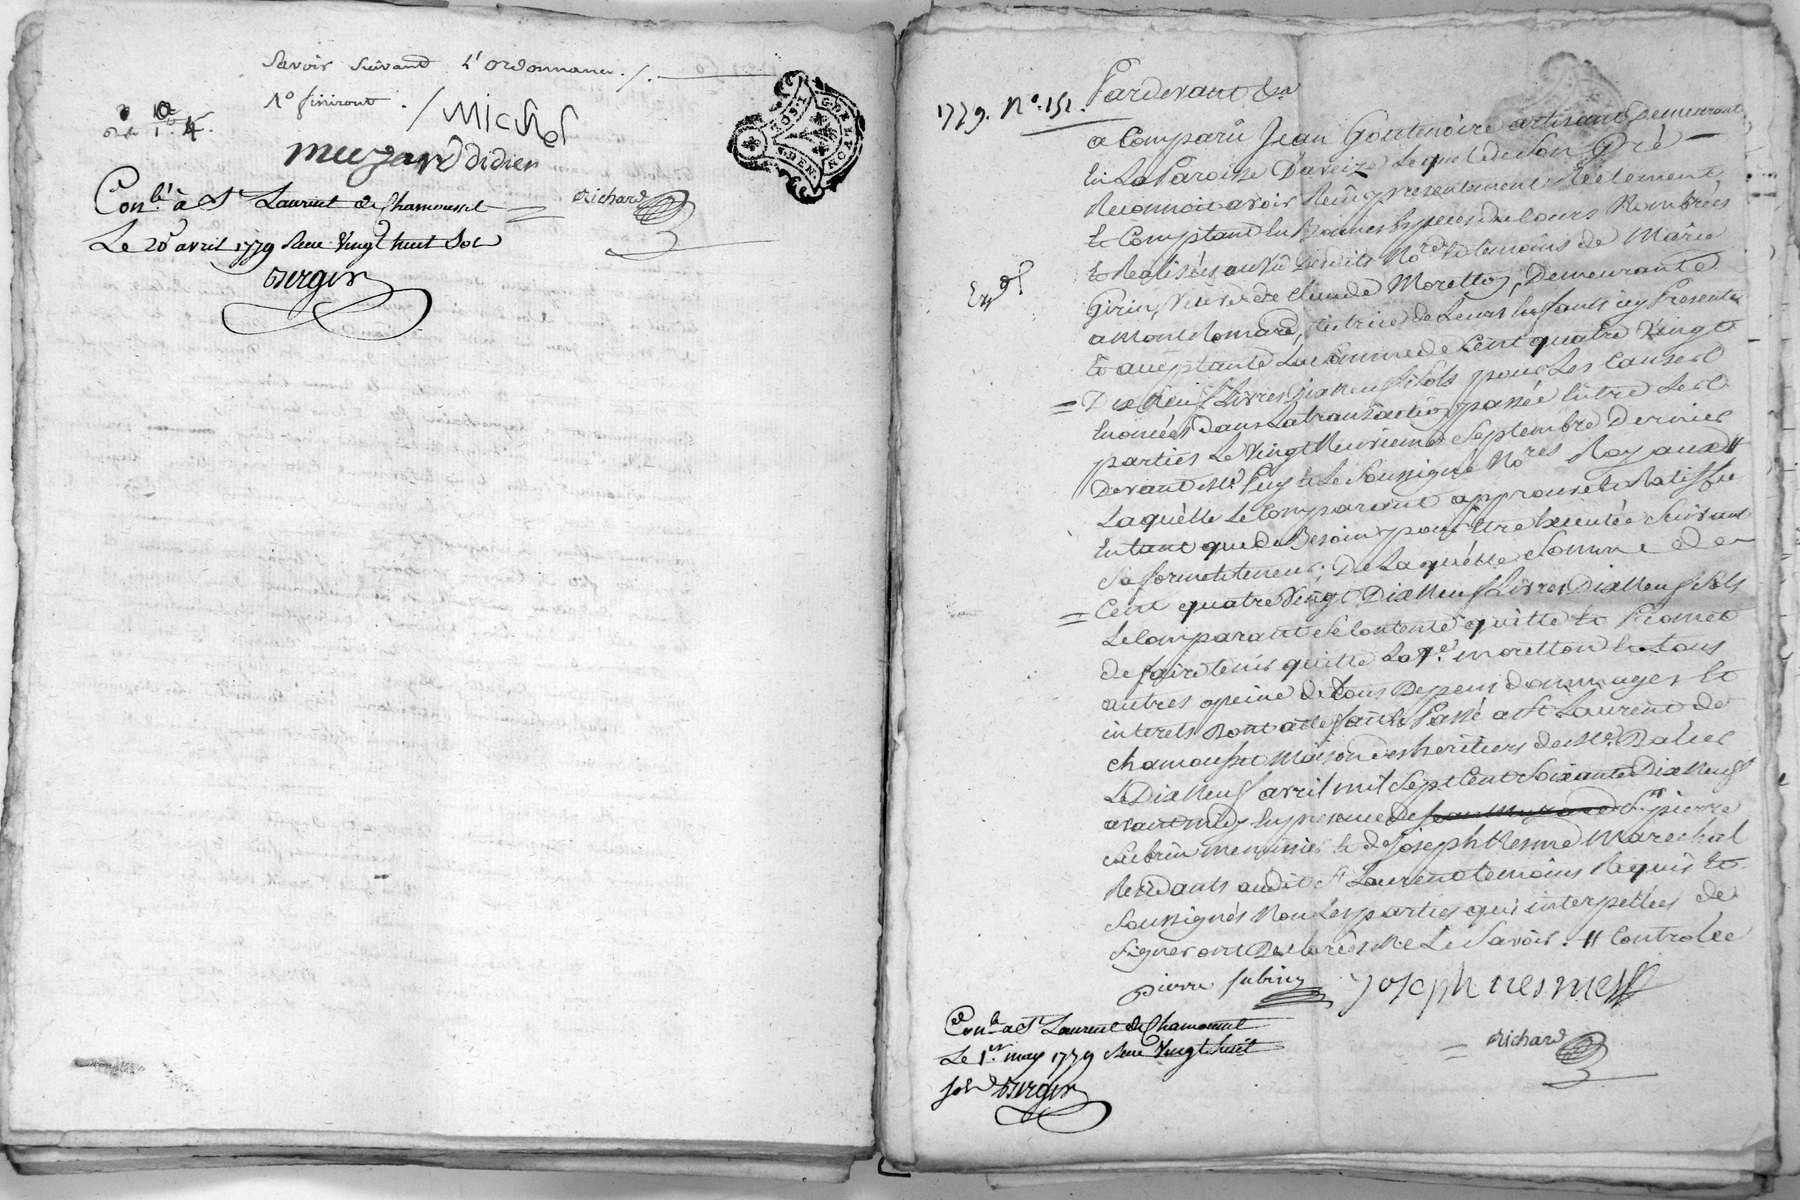 Savoir suivant L'ordonnance ./.
1º finiront .
Michel
muzard didier
Conlé à St Laurent de Chamousset
Richard
Le 20 avril 1779 Reçu Vingt huit Sols
Bergier
1779. Nº. 151.
Pardevant &a
a Comparû Jean Goutenoire artisant Demeurant
En La Paroisse Daveize Lequel de Son Gré
Reconnoit avoir Reçû presentement Réelement
Et Comptant En Bonnes Especes de Cours Nombrées
Et Realisées au vû Desdits Nores et temoins de Marie
Girin, Veuve de Claude Moretton, Demeurante
a Montromand, tutrice de Leurs Enfants icy Presente
Et acceptante La Somme de Cent quatre Vingt
Dix Neuf Livres Dix Neuf Sols pour Les Causes
Enoncées dans La transaction passée Entre Les
parties Le Vingt Neuvieme Septembre Dernier
Devant Me Puy et Le Soussigné Nores Royaux #
Laquelle Le Comparant approuve et Ratiffie
En tant que de Besoin pour Etre Executée Suivant
Sa forme et teneur ; De Laquelle Somme de
Cent quatre Vingt Dix Neuf Livres Dix Neuf Sols
Le Comparant Se Contente quitte Et Promet
de faire tenir quitte La ve. moretton Envers tous
autres a peine de tous Depens Dommages Et
interets Dont acte fait et Passé a St Laurent de
chamousset Maison des heritiers de Me. Dalier
Le Dix Neuf avril mil Sept Cent Soixante Dix Neuf
avant midy En presence de Sr. pierre
Subrin menuisier et de Joseph Nesme Marechal
Residants audit St Laurent temoins Requis Et
Soussignés Non Les parties qui interpellées de
Signer ont Declarées Ne Le Savoir . # Controlée
pierre subrin
Joseph nesme
Conlé a St Laurent de Chamousset
Le 1er. may 1779 Reçu Vingt huit
Sols Bergier
Richard